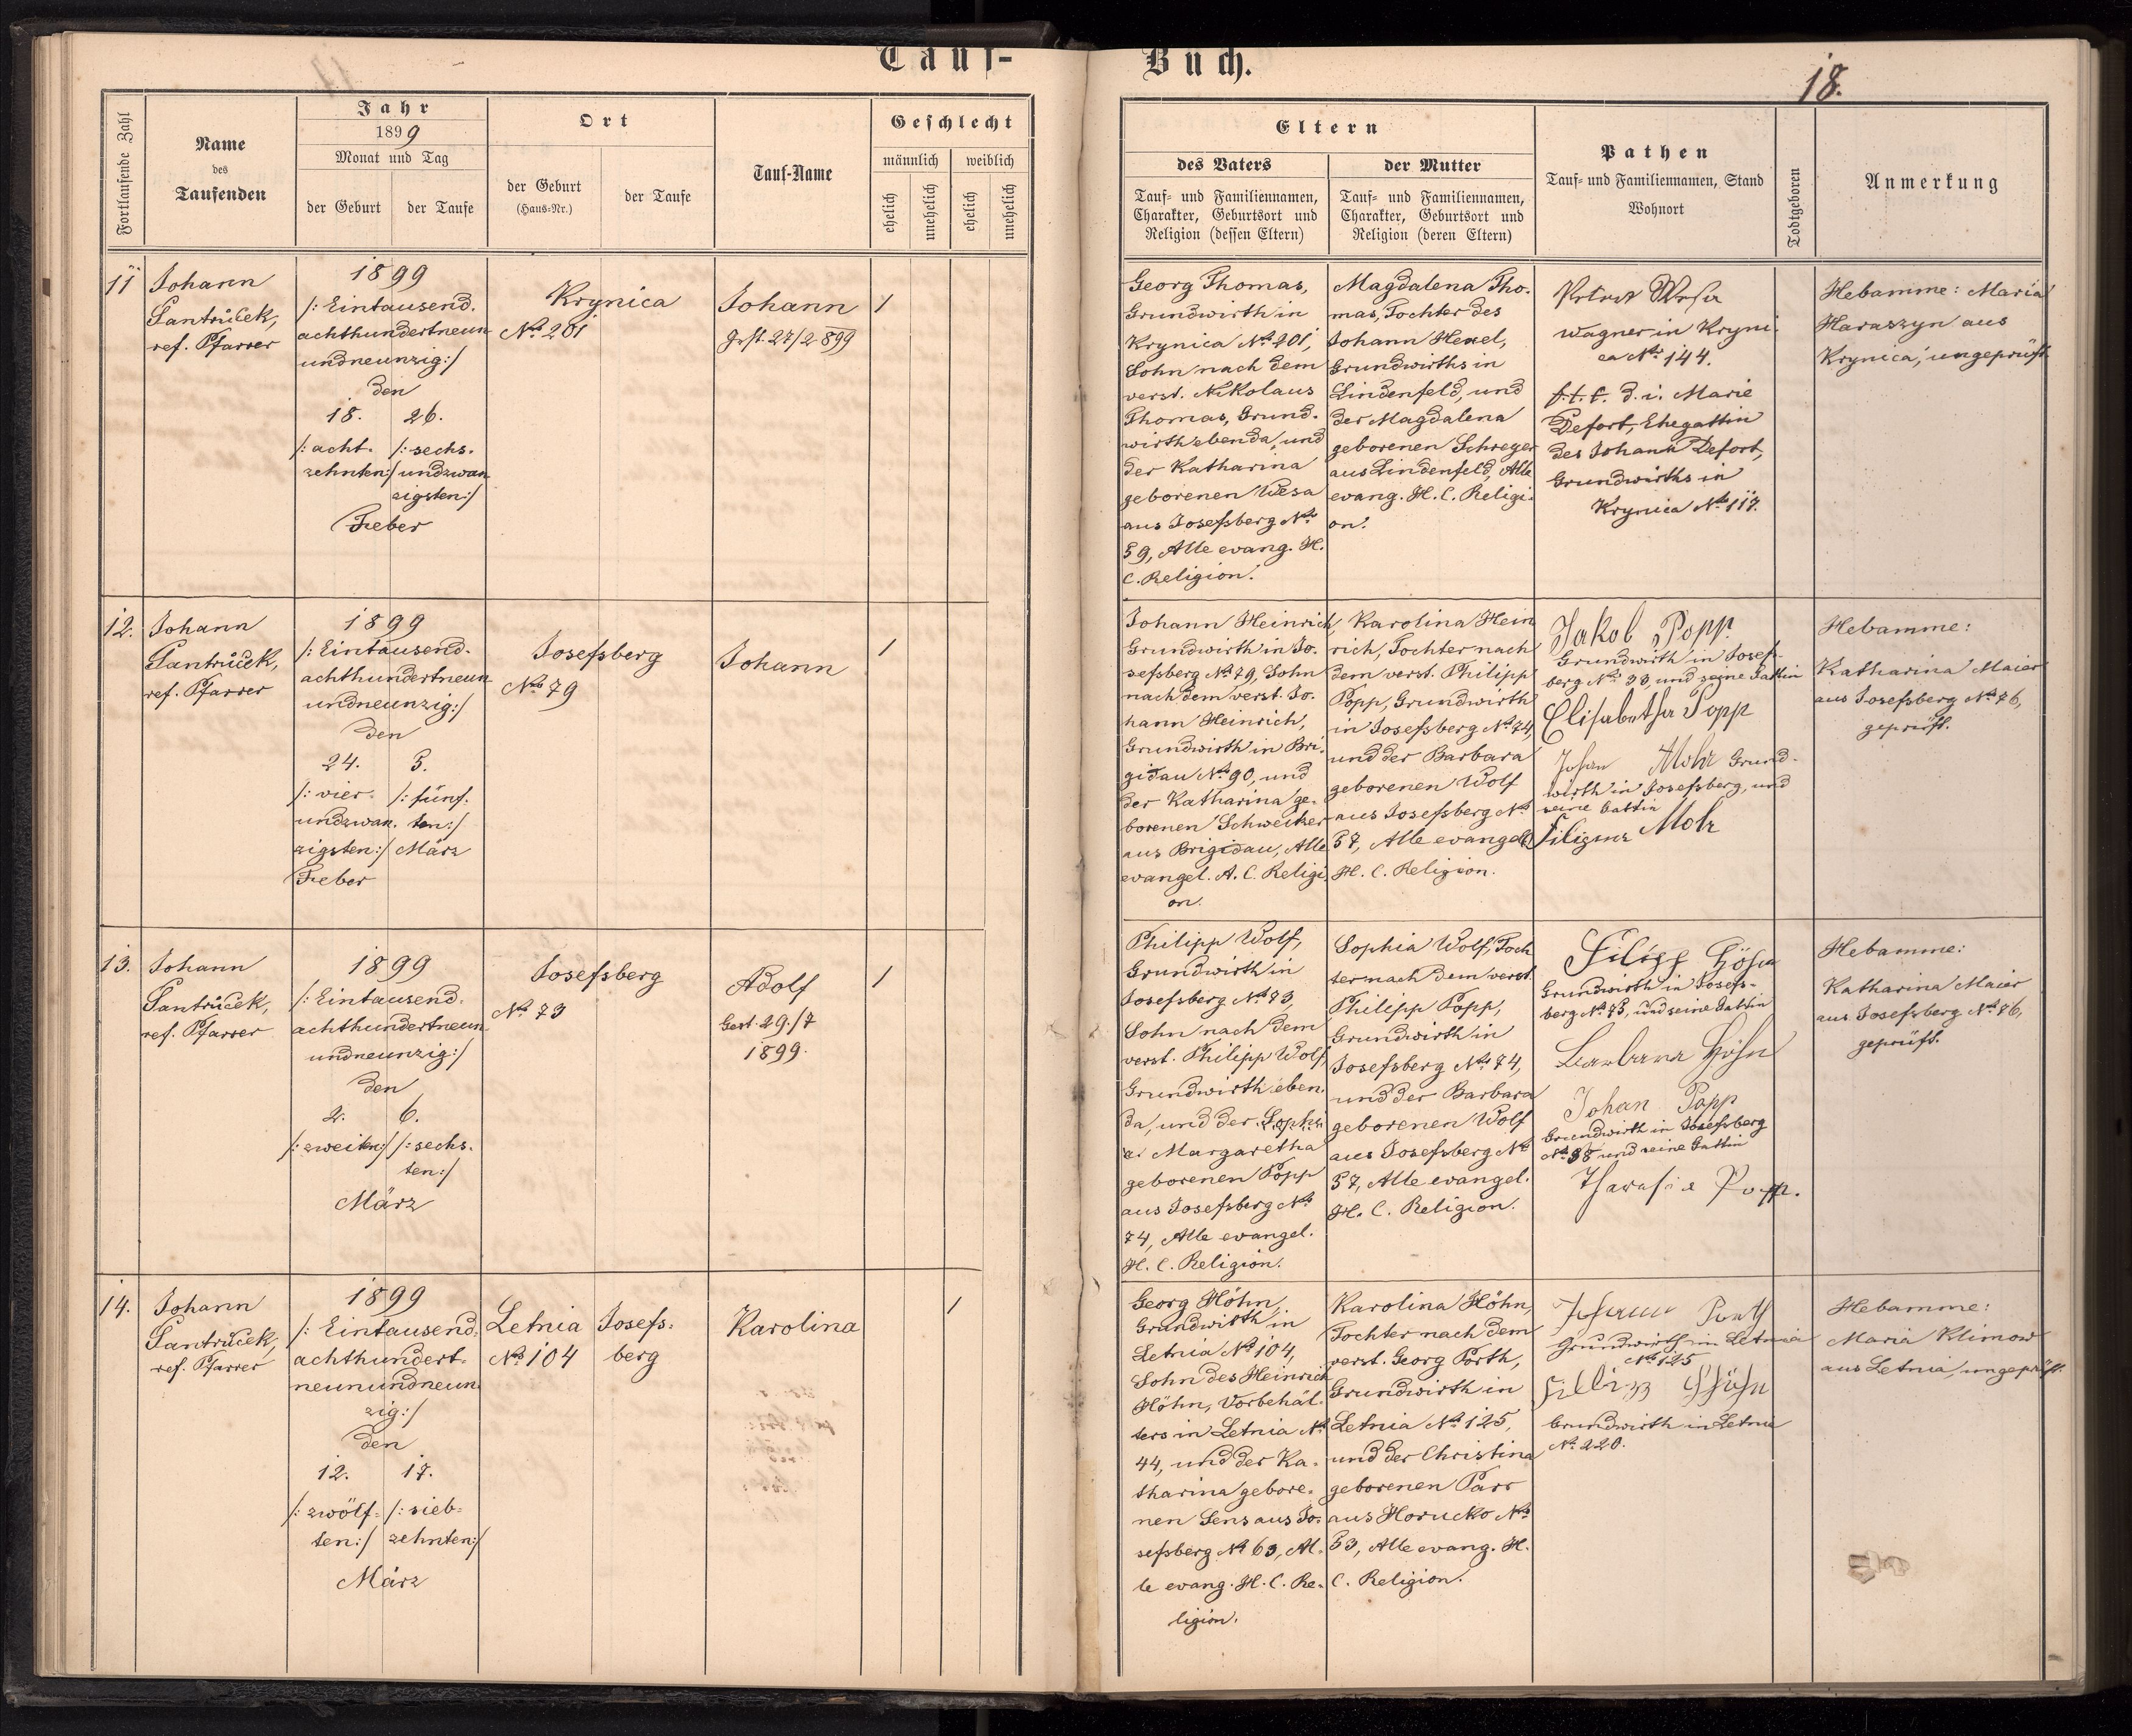 Tauf-
Buch.
18.
Fortlaufende Zahl
Name
des
Taufenden
Jahr
1899
Monat und Tag
der Geburt
der Taufe
Ort
der Geburt
(Haus-Nr.)
der Taufe
Tauf-Name
Geschlecht
männlich
weiblich
ehelich
unehelich
ehelich
unehelich
Eltern
des Vaters
Tauf- und Familiennamen,
Charakter, Geburtsort und
Religion (dessen Eltern)
der Mutter
Tauf- und Familiennamen,
Charakter, Geburtsort und
Religion (deren Eltern)
Pathen
Tauf- und Familiennamen, Stand
Wohnort
Todtgeboren
Anmerkung
11
Johann
Jantruček,
ref. Pfarrer
1899
/: Eintausend.
achthundertneun
undneunzig:/
den
18.
/: acht.
zehnten:/
26.
/: sechs.
undzwan
zigsten:/
Feber
Krynica
No 201
Johann
Gest. 27/2 899
1
Georg Thomas,
Grundwirth in
Krynica No 201,
Sohn nach dem
verst. Nikolaus
Thomas, Grund.
wirth ebenda, und
der Katharina
geborenen Wesa
aus Josefsberg No
59, Alle evang. H.
C. Religion.
Magdalena Tho.
mas, Tochter des
Johann Hexel,
Grundwirths in
Lindenfeld, und
der Magdalena
geborenen Schreyer
aus Lindenfeld, Alle
evang. H. C. Religi.
on.
Petrer Wesa
Wagner in Kryni.
ca No 144.
f. t. t. d. i. Marie
Defort, Ehegattin
des Johann Defort,
Grundwirths in
Krynica No 117.
Hebamme: Maria
Haraszyn aus
Krynica, ungeprüft.
12.
Johann
Jantruček,
ref. Pfarrer
1899
/: Eintausend.
achthundertneun
undneunzig:/
den
24.
/: vier.
undzwan.
zigsten:/
Feber
5.
/: fünf.
ten:/
März
Josefsberg
No 79
Johann
1
Johann Heinrich,
Grundwirth in Jo.
sefsberg No 79, Sohn
nach dem verst. Jo.
hann Heinrich,
Grundwirth in Bri.
gidau No 90, und
der Katharina ge.
borenen Schweitzer
aus Brigidau, Alle
evangel. A. C. Religi.
on.
Karolina Hein
rich, Tochter nach
dem verst. Philipp
Popp, Grundwirth
in Josefsberg No 74,
und der Barbara
geborenen Wolf
aus Josefsberg No
57, Alle evangel.
H. C. Religion.
Jakob Popp
Grundwirth in Josefs-
berg No 38, und seine Gattin
Elisabetha Popp
Johan Mohr Grund.
wirth in Josefsberg, und
seine Gattin
Filipina Mohr
Hebamme:
Katharina Maier
aus Josefsberg No 76,
geprüft.
13.
Johann
Jantruček,
ref. Pfarrer
1899
/: Eintausend.
achthundertneun
undneunzig:/
den
2.
/: zweiten:/
6.
/: sechs.
ten:/
März
Josefsberg
No 73
Adolf
Gest. 29./7
1899.
1
Philipp Wolf,
Grundwirth in
Josefsberg No 73,
Sohn nach dem
verst. Philipp Wolf,
Grundwirth eben.
da, und der Sophi
a Margaretha
geborenen Popp
aus Josefsberg No
74, Alle evangel.
H. C. Religion.
Sophia Wolf, Toch
ter nach dem verst.
Philipp Popp,
Grundwirth in
Josefsberg No 74,
und der Barbara
geborenen Wolf
aus Josefsberg No
57, Alle evangel.
H. C. Religion.
Filipp Höhn
Grundwirth in Josefs-
berg No 75, und seine Gattin
Barbara Höhn
Johan Popp
Grundwirth in Josefsberg
No 38 und seine Gattin
Theresia Popp.
Hebamme:
Katharina Maier
aus Josefsberg No 76,
geprüft.
14.
Johann
Jantruček,
ref. Pfarrer
1899
/: Eintausend.
achthundert.
neunundneun.
zig:/
den
12.
/: zwölf.
ten:/
17.
/: sieb.
zehnten:/
März
Letnia
No 104
Josefs.
berg
Karolina
1
Georg Höhn,
Grundwirth in
Letnia No 104,
Sohn des Heinrich
Höhn, Vorbehäl.
ters in Letnia No
44, und der Ka.
tharina gebore.
nen Sens aus Jo.
sefsberg No 63, Al.
le evang. H. C. Re.
ligion.
Karolina Höhn,
Tochter nach dem
verst. Georg Porth,
Grundwirth in
Letnia No 125,
und der Christina
geborenen Parr
aus Horucko No
53, Alle evang. H.
C. Religion.
Johann Porth
Grundwirth in Letnia
No 125
Filipp Höhn
Grundwirth in Letnia
No 220.
Hebamme:
Maria Klimow
aus Letnia, ungeprüft.